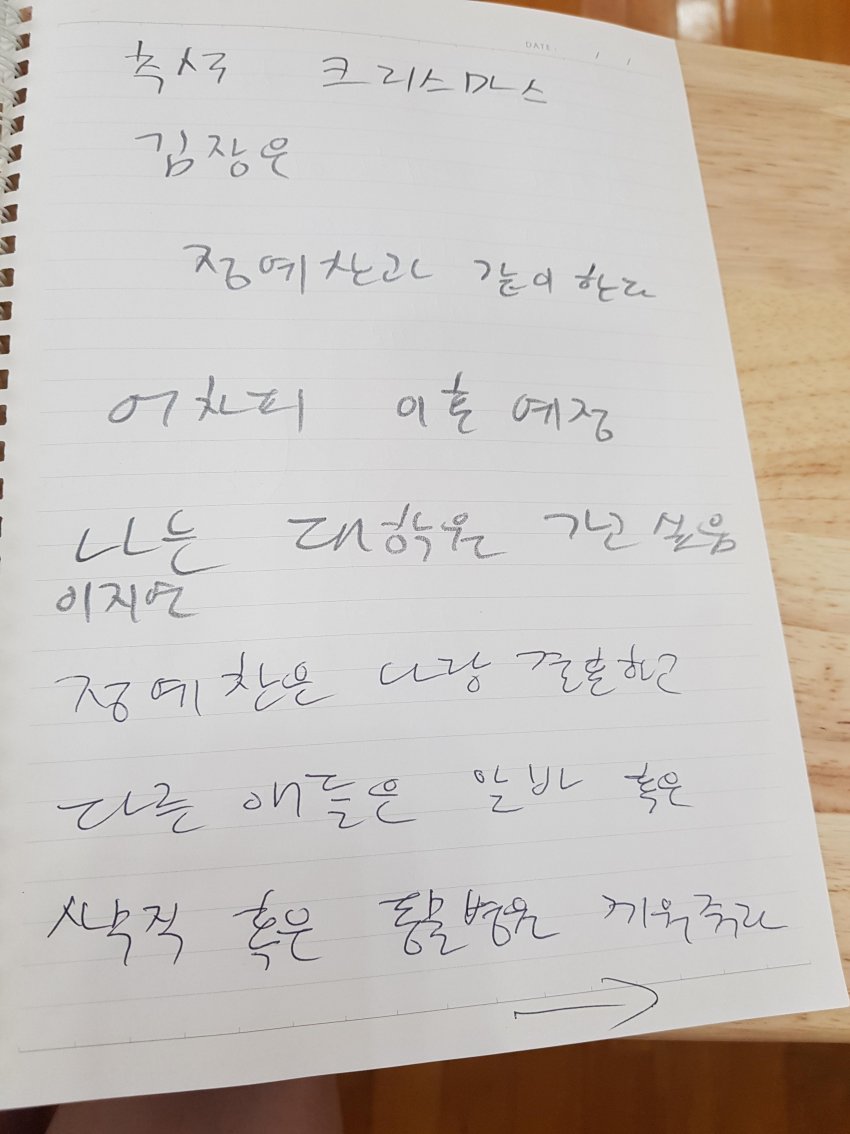 DATE: / /
축사구 크리스마스
김장운
정예찬과 같이 한다
어차피 이혼 예정
나는 대학원 가고싶음
이지연
정예찬은 나랑 결혼하고
다른 애들은 알바 혹은
사무직 혹은 동물병원 끼워주라